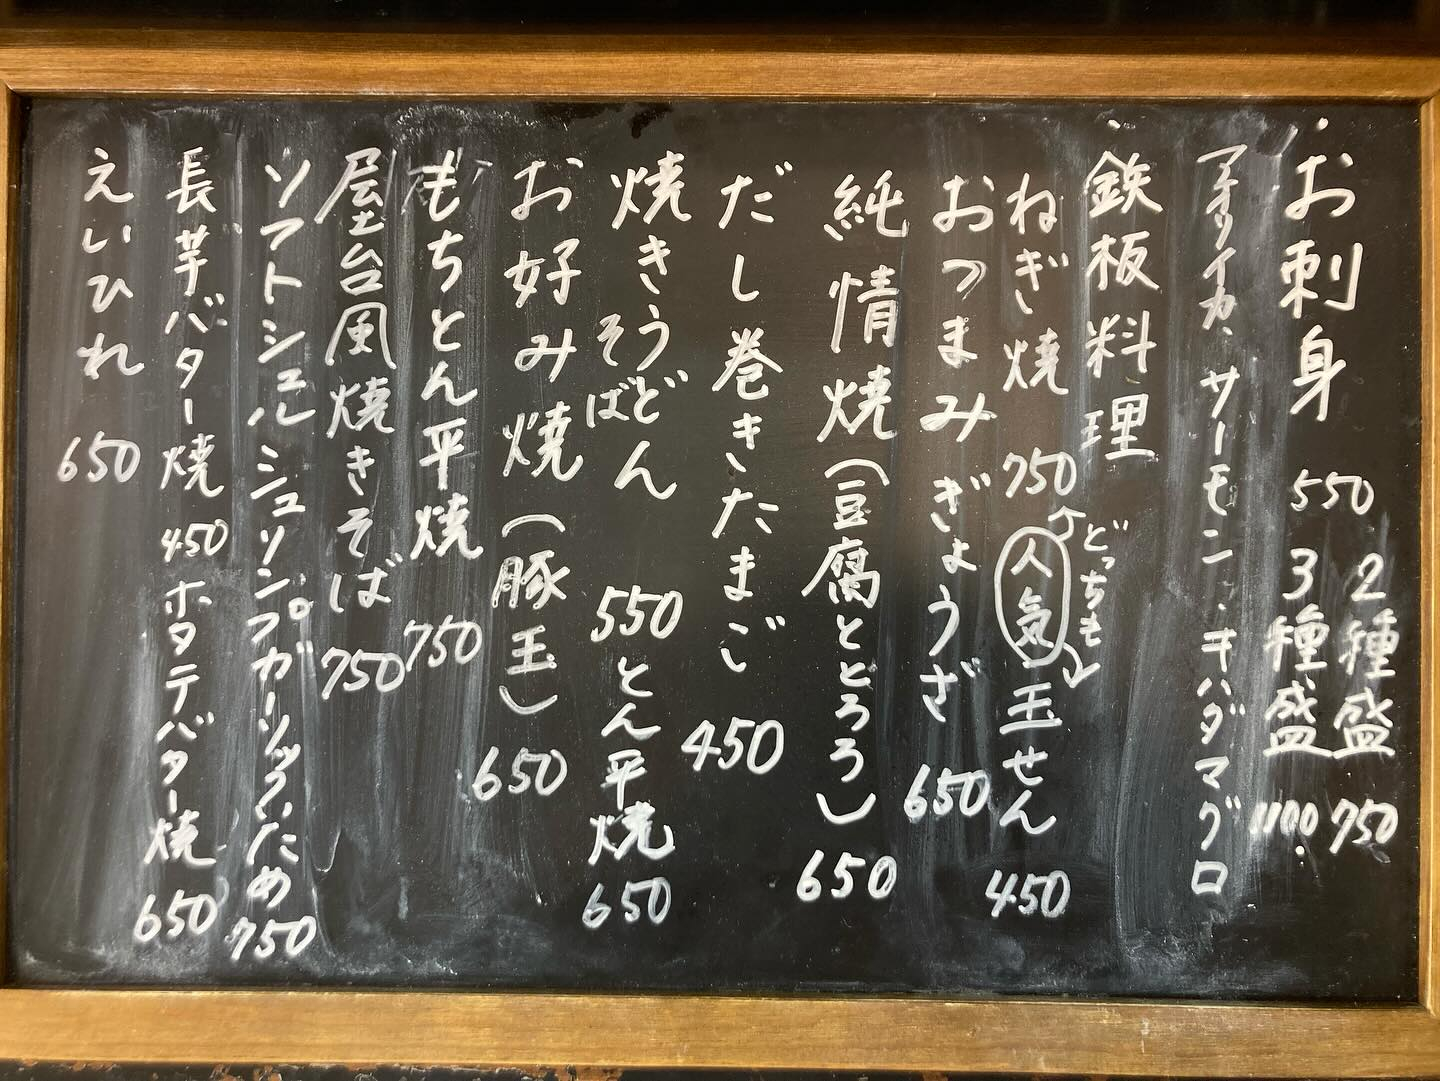 ・お刺身 550 2種盛 750
3種盛 1100
アオリイカ、サーモン、キハダマグロ
・鉄板料理
ねぎ焼 750 人気 玉せん 450
どっちも
おつまみぎょうざ 650
純情焼(豆腐ととろろ) 650
だし巻きたまご 450
焼きうどん 550 とん平焼 650
そば
お好み焼(豚玉) 650
もちとん平焼 750
屋台風焼きそば 750
ソフトシェルシュリンプガーリックいため 750
長芋バター焼 450 ホタテバター焼 650
えいひれ 650